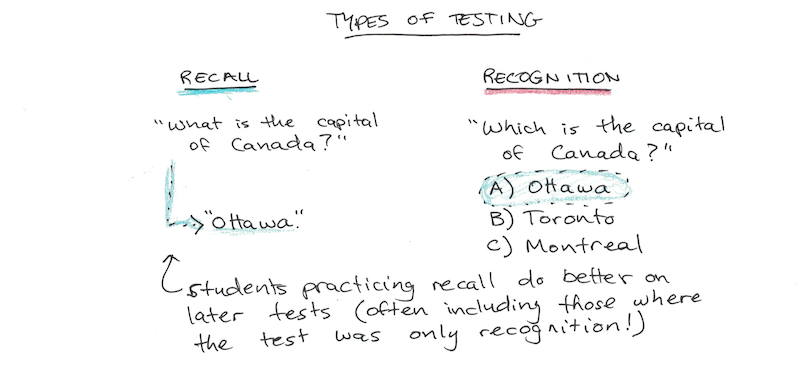 TYPES OF TESTING
RECALL
"What is the capital
of Canada?"
"Ottawa."
RECOGNITION
"Which is the capital
of Canada?"
A) Ottawa
B) Toronto
C) Montreal
students practicing recall do better on
later tests (often including those where
the test was only recognition!)